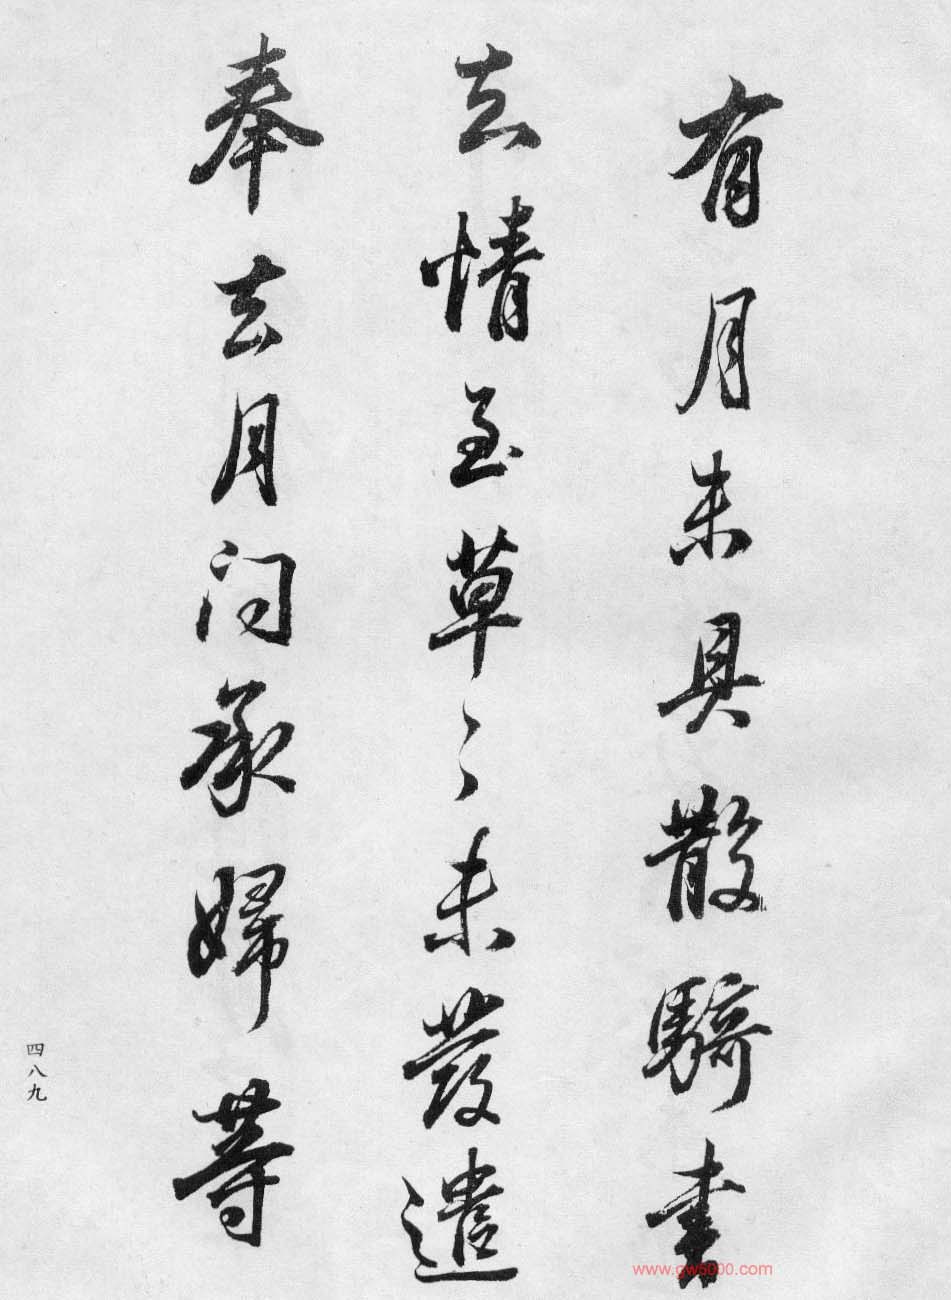 有月未具散騎書
去情至草〻未發遣
奉去月問承婦等
四八九
www.gw5000.com